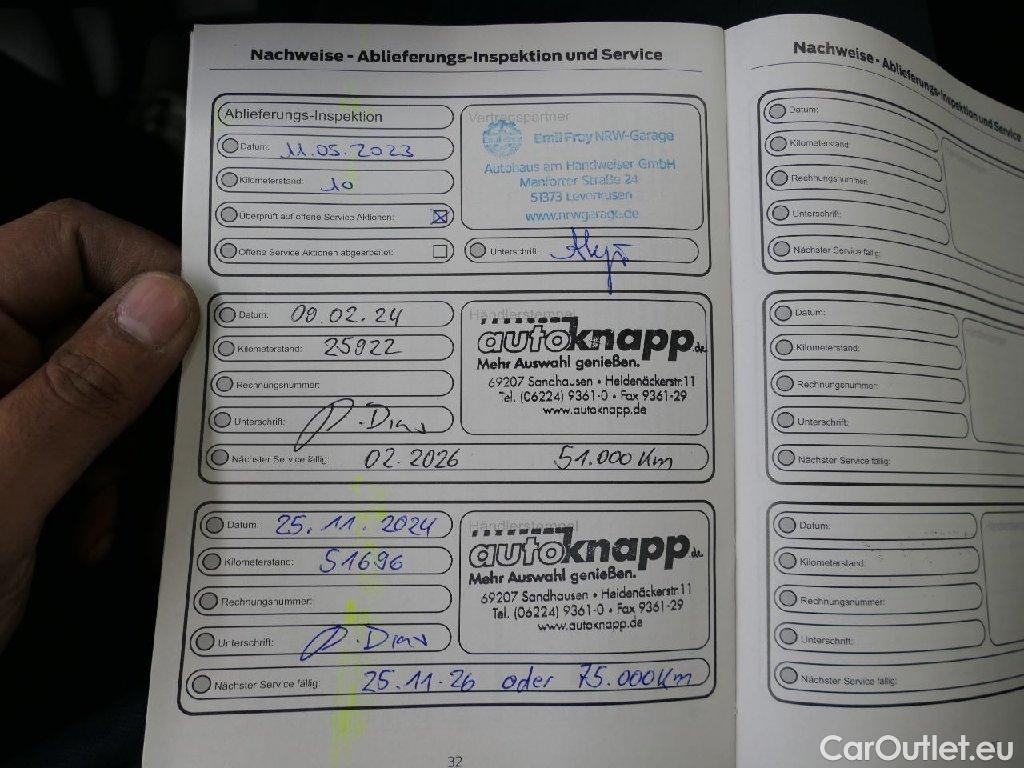 Nachweise - Ablieferungs-Inspektion und Service
Ablieferungs-Inspektion
Datum: 11.05.2023
Kilometerstand: 10
Überprüft auf offene Service Aktionen: ☒
Offene Service Aktionen abgearbeitet: ☐
Vertragspartner
Emil Frey NRW-Garage
Autohaus am Handweiser GmbH
Manforter Straße 24
51373 Leverkusen
www.nrwgarage.de
Unterschrift:
Datum: 09.02.24
Kilometerstand: 25922
Rechnungsnummer:
Unterschrift:
Nächster Service fällig: 02.2026 51.000 Km
Händlerstempel
autoknapp.de
Mehr Auswahl genießen.
69207 Sandhausen • Heidenäckerstr. 11
Tel. (06224) 9361-0 • Fax 9361-29
www.autoknapp.de
Datum: 25.11.2024
Kilometerstand: 51696
Rechnungsnummer:
Unterschrift:
Nächster Service fällig: 25.11.26 oder 75.000Km
Händlerstempel
autoknapp.de
Mehr Auswahl genießen.
69207 Sandhausen • Heidenäckerstr. 11
Tel. (06224) 9361-0 • Fax 9361-29
www.autoknapp.de
32
Nachweise - Ablieferungs-Inspektion und Service
Datum:
Kilometerstand:
Rechnungsnummer:
Unterschrift:
Nächster Service fällig:
Datum:
Kilometerstand:
Rechnungsnummer:
Unterschrift:
Nächster Service fällig:
Datum:
Kilometerstand:
Rechnungsnummer:
Unterschrift:
Nächster Service fällig:
CarOutlet.eu